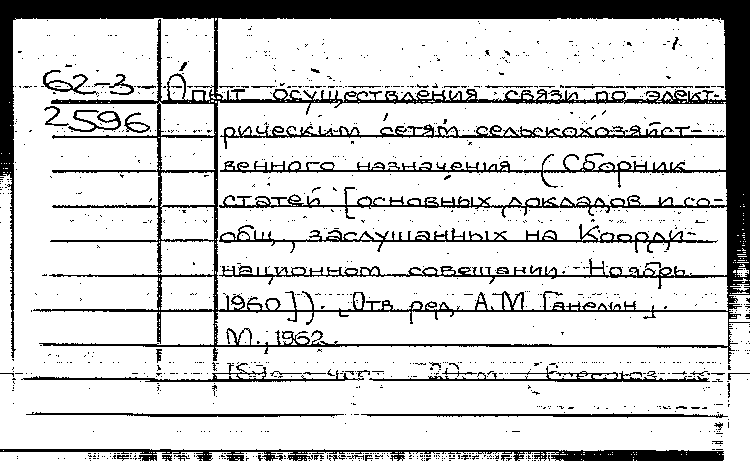 62-3- Опыт осуществления связи по элект-
2596 рическим сетям сельскохозяйст-
венного назначения (Сборник
статей [основных докладов и со-
общ., заслушанных на Коорди-
национном совещании. Ноябрь
1960]). [Отв. ред. А.М. Ганелин].
М., 1962.
с черт. 20 см (Всесоюз.